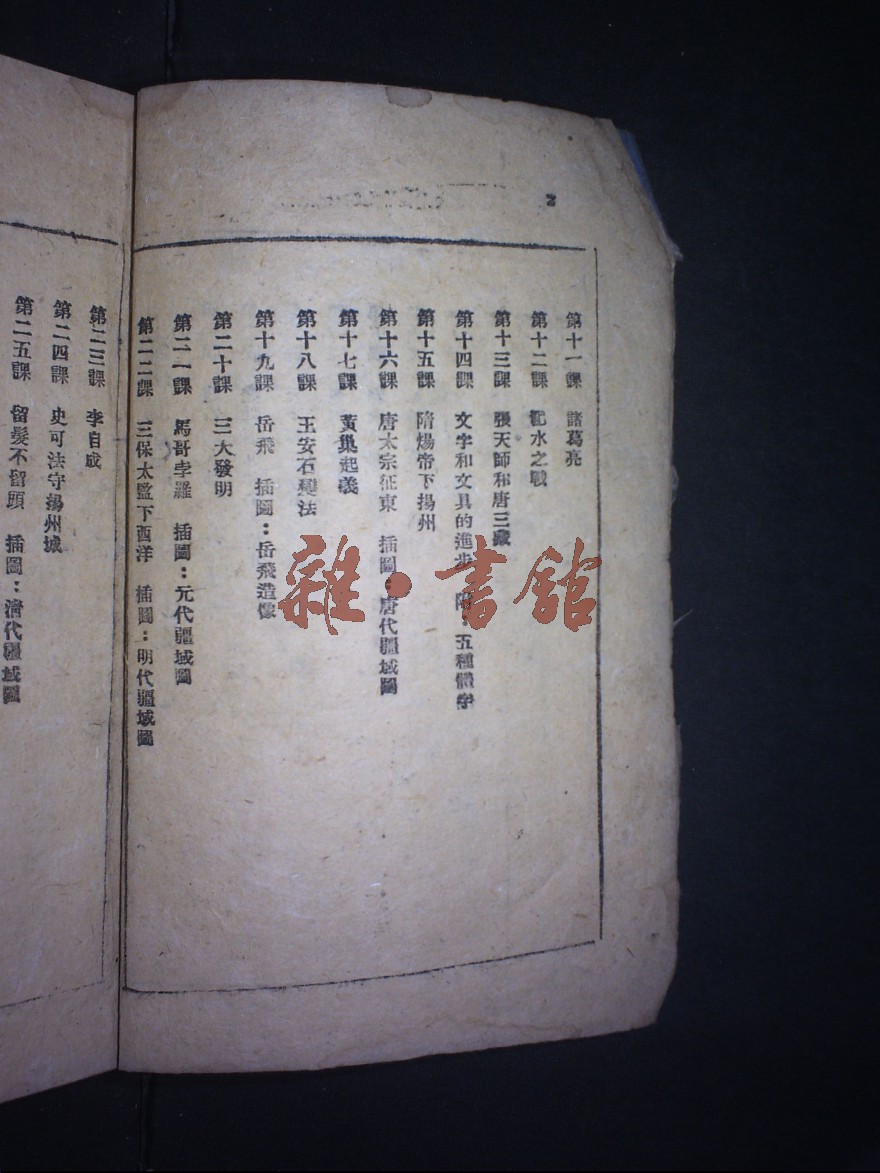 2
第十一課 諸葛亮
第十二課 淝水之戰
第十三課 張天師和唐三藏
第十四課 文字和文具的進步 附：五種體字
第十五課 隋煬帝下揚州
第十六課 唐太宗征東 插圖：唐代疆域圖
第十七課 黃巢起義
第十八課 王安石變法
第十九課 岳飛 插圖：岳飛造像
第二十課 三大發明
第二一課 馬哥孛羅 插圖：元代疆域圖
第二二課 三保太監下西洋 插圖：明代疆域圖
第二三課 李自成
第二四課 史可法守揚州城
第二五課 留髮不留頭 插圖：清代疆域圖
雜·書館